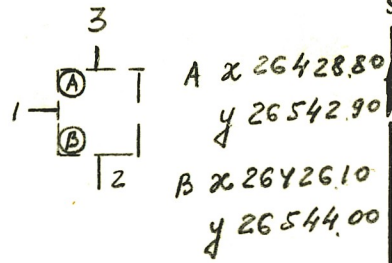 3
A x 26428.80
y 26542.90
1
B x 26426.10
2
y 26544.00